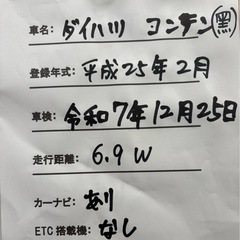 車名: ダイハツ コンテン(黒)
登録年式: 平成25年2月
車検: 令和7年12月25日
走行距離: 6.9W
カーナビ: あり
ETC搭載機: なし